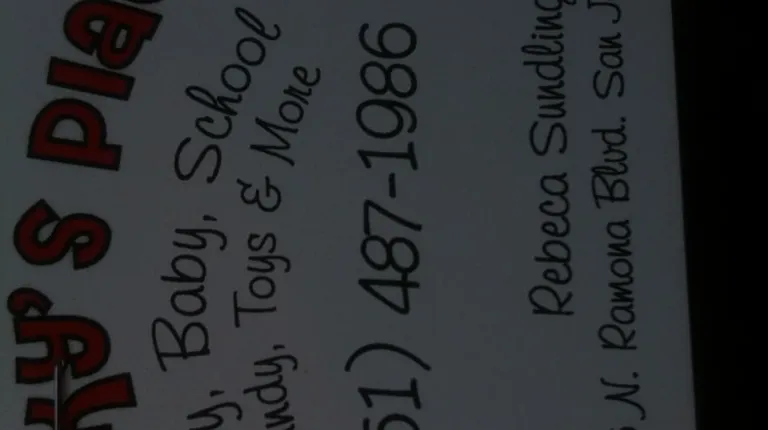 y's Pla
y, Baby, School
ndy, Toys & More
51) 487-1986
Rebeca Sundling
N. Ramona Blvd. San J